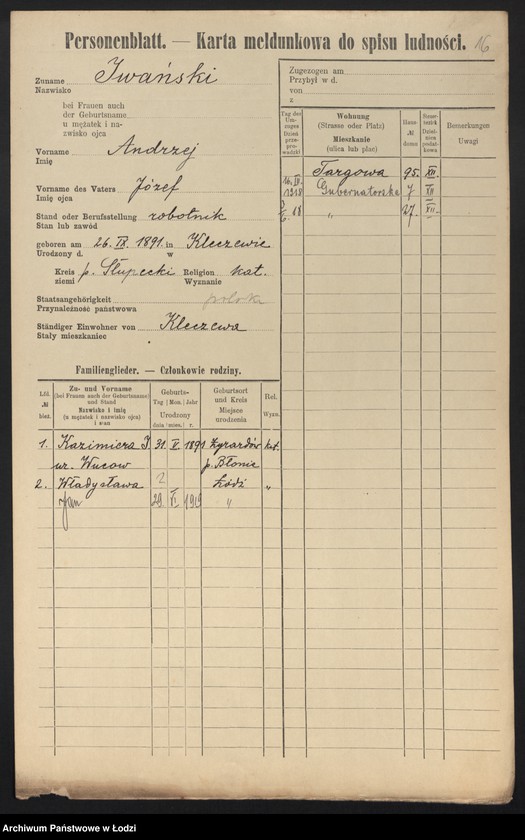 Personenblatt. — Karta meldunkowa do spisu ludności.
16
Zuname Iwański
Nazwisko
bei Frauen auch
der Geburtsname
u mężatek i na-
zwisko ojca
Vorname Andrzej
Imię
Vorname des Vaters Józef
Imię ojca
Stand oder Berufsstellung robotnik
Stan lub zawód
geboren am 26. IX. 1891. in Kleczewie
Urodzony d. w
Kreis p. Słupecki Religion kat.
ziemi Wyznanie
Staatsangehörigkeit polska
Przynależność państwowa
Ständiger Einwohner von Kleczewa
Stały mieszkaniec
Zugezogen am
Przybył w d.
von
z
Tag des
Um-
zuges
Dzień
prze-
prowadzki
Wohnung
(Strasse oder Platz)
Mieszkanie
(ulica lub plac)
Haus-
№
domu
Steuer-
bezirk
Dzielnica
podat-
kowa
Bemerkungen
Uwagi
Targowa 95. XII.
16. IV. 1918 Gubernatorska 7 XII
„ 27. XII.
Familienglieder. — Członkowie rodziny.
Lfd.
№
bież.
Zu- und Vorname
(bei Frauen auch der Geburtsname)
und Stand
Nazwisko i imię
(u mężatek i nazwisko ojca)
i stan
Geburts-
Tag | Mon. | Jahr
Urodzony
dnia | mies. | r.
Geburtsort
und Kreis
Miejsce
urodzenia
Rel.
Wyzn.
1. Kazimiera I. 31. V. 1891 Żyrardów kat.
ur. Wucow p. Błonie
2. Władysława 2 Łódź „
Jan 29 VI 1919 „
Archiwum Państwowe w Łodzi